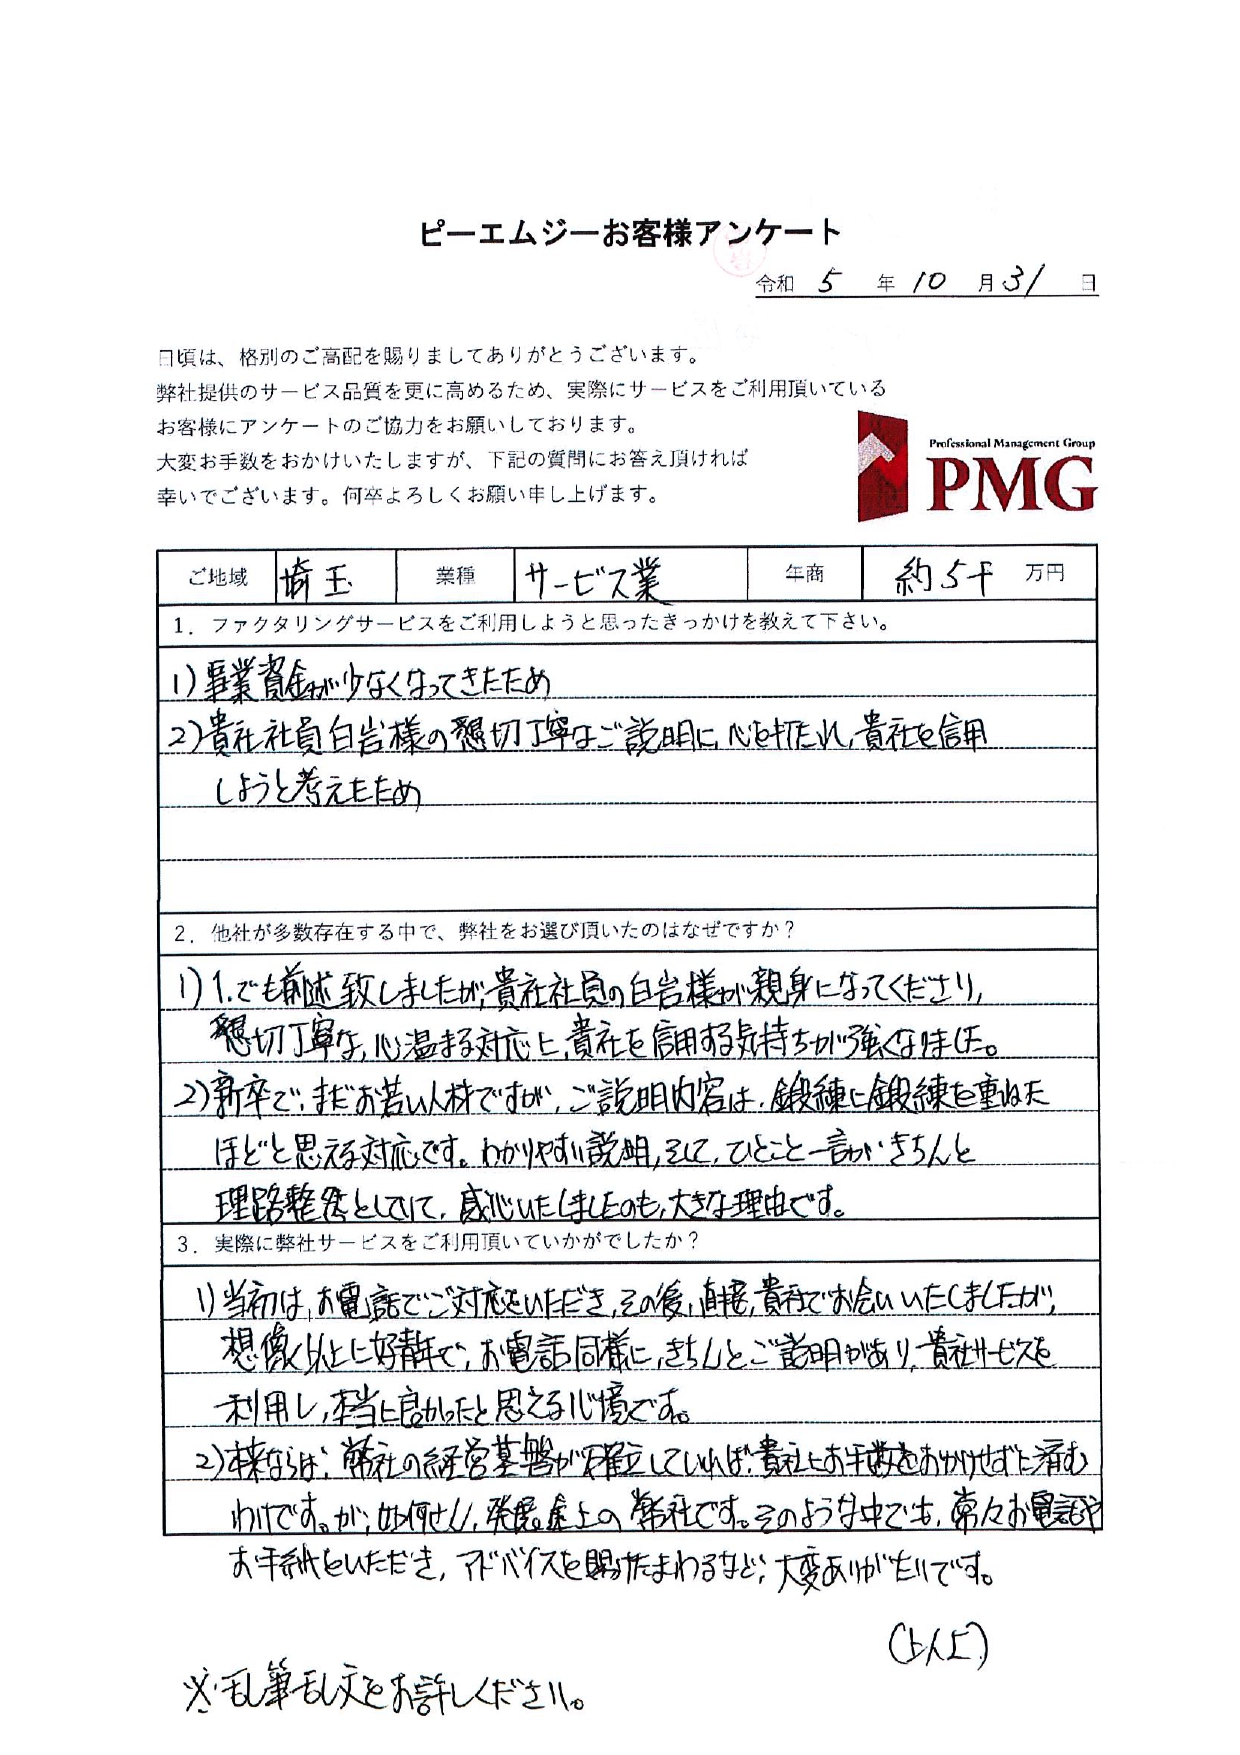 ピーエムジーお客様アンケート
令和 5 年 10 月 31 日
日頃は、格別のご高配を賜りましてありがとうございます。
弊社提供のサービス品質を更に高めるため、実際にサービスをご利用頂いている
お客様にアンケートのご協力をお願いしております。
大変お手数をおかけいたしますが、下記の質問にお答え頂ければ
幸いでございます。何卒よろしくお願い申し上げます。
Professional Management Group
PMG
ご地域 埼玉 業種 サービス業 年商 約5千 万円
1．ファクタリングサービスをご利用しようと思ったきっかけを教えて下さい。
1)事業資金が少なくなってきたため
2)貴社社員白岩様の懇切丁寧なご説明に、心を打たれ、貴社を信用
しようと考えたため
2．他社が多数存在する中で、弊社をお選び頂いたのはなぜですか？
1)1.でも前述致しましたが、貴社社員の白岩様が親身になってくださり、
懇切丁寧な、心温まる対応に、貴社を信用する気持ちが強くなりました。
2)新卒で、まだお若い人材ですが、ご説明内容は、鍛練に鍛練を重ねた
ほどと思える対応です。わかりやすい説明、そして、ひとこと一言がきちんと
理路整然としていて、感心いたしましたのも、大きな理由です。
3．実際に弊社サービスをご利用頂いていかがでしたか？
1)当初は、お電話でご対応をいただき、その後、直接、貴社でお会いいたしましたが、
想像以上に好青年で、お電話同様に、きちんとご説明があり、貴社サービスを
利用し、本当に良かったと思える心境です。
2)本来ならば、弊社の経営基盤が確立していれば、貴社にお手数をおかけせずに済む
わけです。が、如何せん、発展途上の弊社です。そのような中でも、常々お電話や
お手紙をいただき、アドバイスを賜たまわるなど、大変ありがたいです。
(以上)
※乱筆乱文をお許しください。